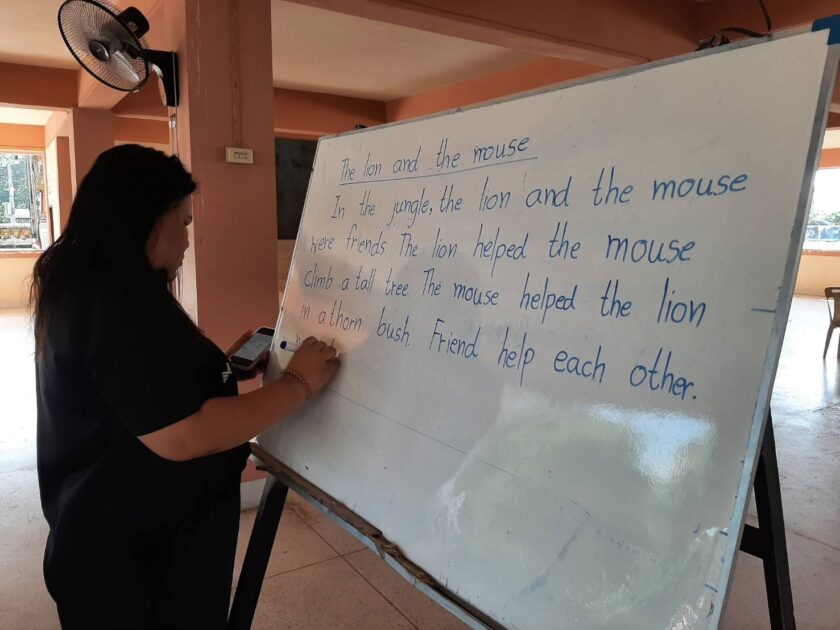 The lion and the mouse
In the jungle, the lion and the mouse
were friends. The lion helped the mouse
climb a tall tree The mouse helped the lion
in a thorn bush. Friend help each other.